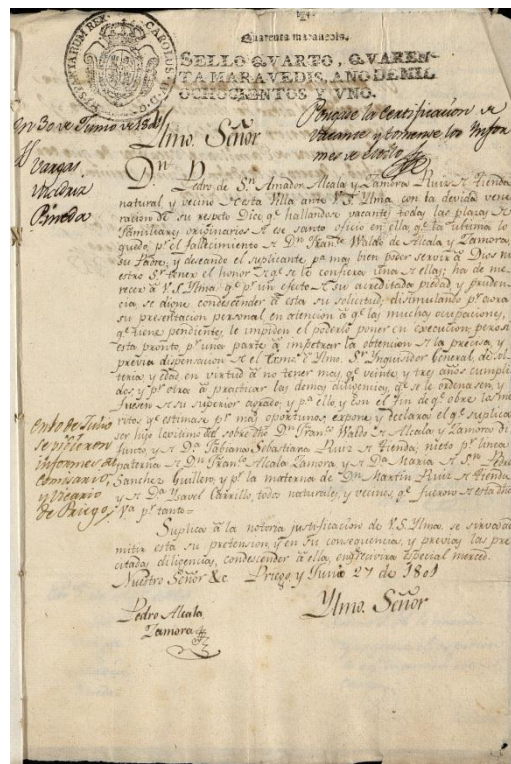 CAROLUS IV D G HISPANIARUM REX
Quarenta maravedis.
SELLO QVARTO, QVAREN-
TA MARAVEDIS, AÑO DE MIL
OCHOCIENTOS Y VNO.
En 30 de Junio de 1801
SS
Vargas
Pineda
Pongase la Certificacion de
Vacante y tomense los Infor
mes de estilo
Ylmo. Señor
Dn. Pedro de Sn. Amador Alcala y Zamora Ruiz de Tienda
natural y vecino de esta Villa ante V.S. Ylma. con la devida vene
racion de su respeto Dice qe. hallandose vacantes todas las plazas de
Familiares originarios de ese santo oficio en ella, qe. la ultima lo
quedó pr. el fallecimiento de Dn. Franco. Waldo de Alcala y Zamora,
su Padre, y deseando el suplicante pa. mas bien poder servir a Dios nu
estro Sr. tener el honor de qe. se le confiera una de ellas; ha de me
recer a V.S. Ylma. qe. pr. un efecto de su acreditada piedad y pruden
cia, se digne condescender á esta su solicitud; disimulando pr. aora
su presentacion personal, en atencion á qe. las muchas ocupaciones,
qe. tiene pendientes, le impiden el poderlo poner en execucion, pero si
esta pronto, pr. una parte á impetrar la obtencion de la precisa, y
previa dispensacion de el Exmo. é Ylmo. Sr. Ynquisidor General, de sol
teria y edad, en virtud á no tener mas, qe. veinte, y tres años cumpli
dos; y pr. otra á practicar las demas diligencias, qe. se le ordenasen, y
fuesen de su superior agrado; y pa. ello y con el fin de qe. obre los me
ritos qe. estimase pr. mas oportunos, expone y declara el qe. suplica
ser hijo lexitimo del sobre dho Dn. Franco. Waldo de Alcala y Zamora di
funto, y Da. Fabiana Sebastiana Ruiz de Tienda; nieto pr. linea
paterna de Dn. Franco. Alcala Zamora, y de Da. Maria de Sn. Pedro
Sanchez Guillen, y pr. la materna de Dn. Martin Ruiz de Tienda
y de Da. Ysavel Carrillo, todos naturales, y vecinos, qe. fueron de esta dha
Va. pr. tanto=
En 1o. de Julio
se pidieron
informes al
Comisario,
y Vicario
de Priego
Suplica á la notoria justificacion de V.S. Ylma. se sirva ad
mitir esta su pretension, y en su consequencia, y previas las pre
citadas diligencias, condescender á ella, en qe. recivira especial merced.
Nuestro Señor &c. Priego, y Junio 27 de 1801
Ylmo. Señor
Pedro Alcala
Zamora